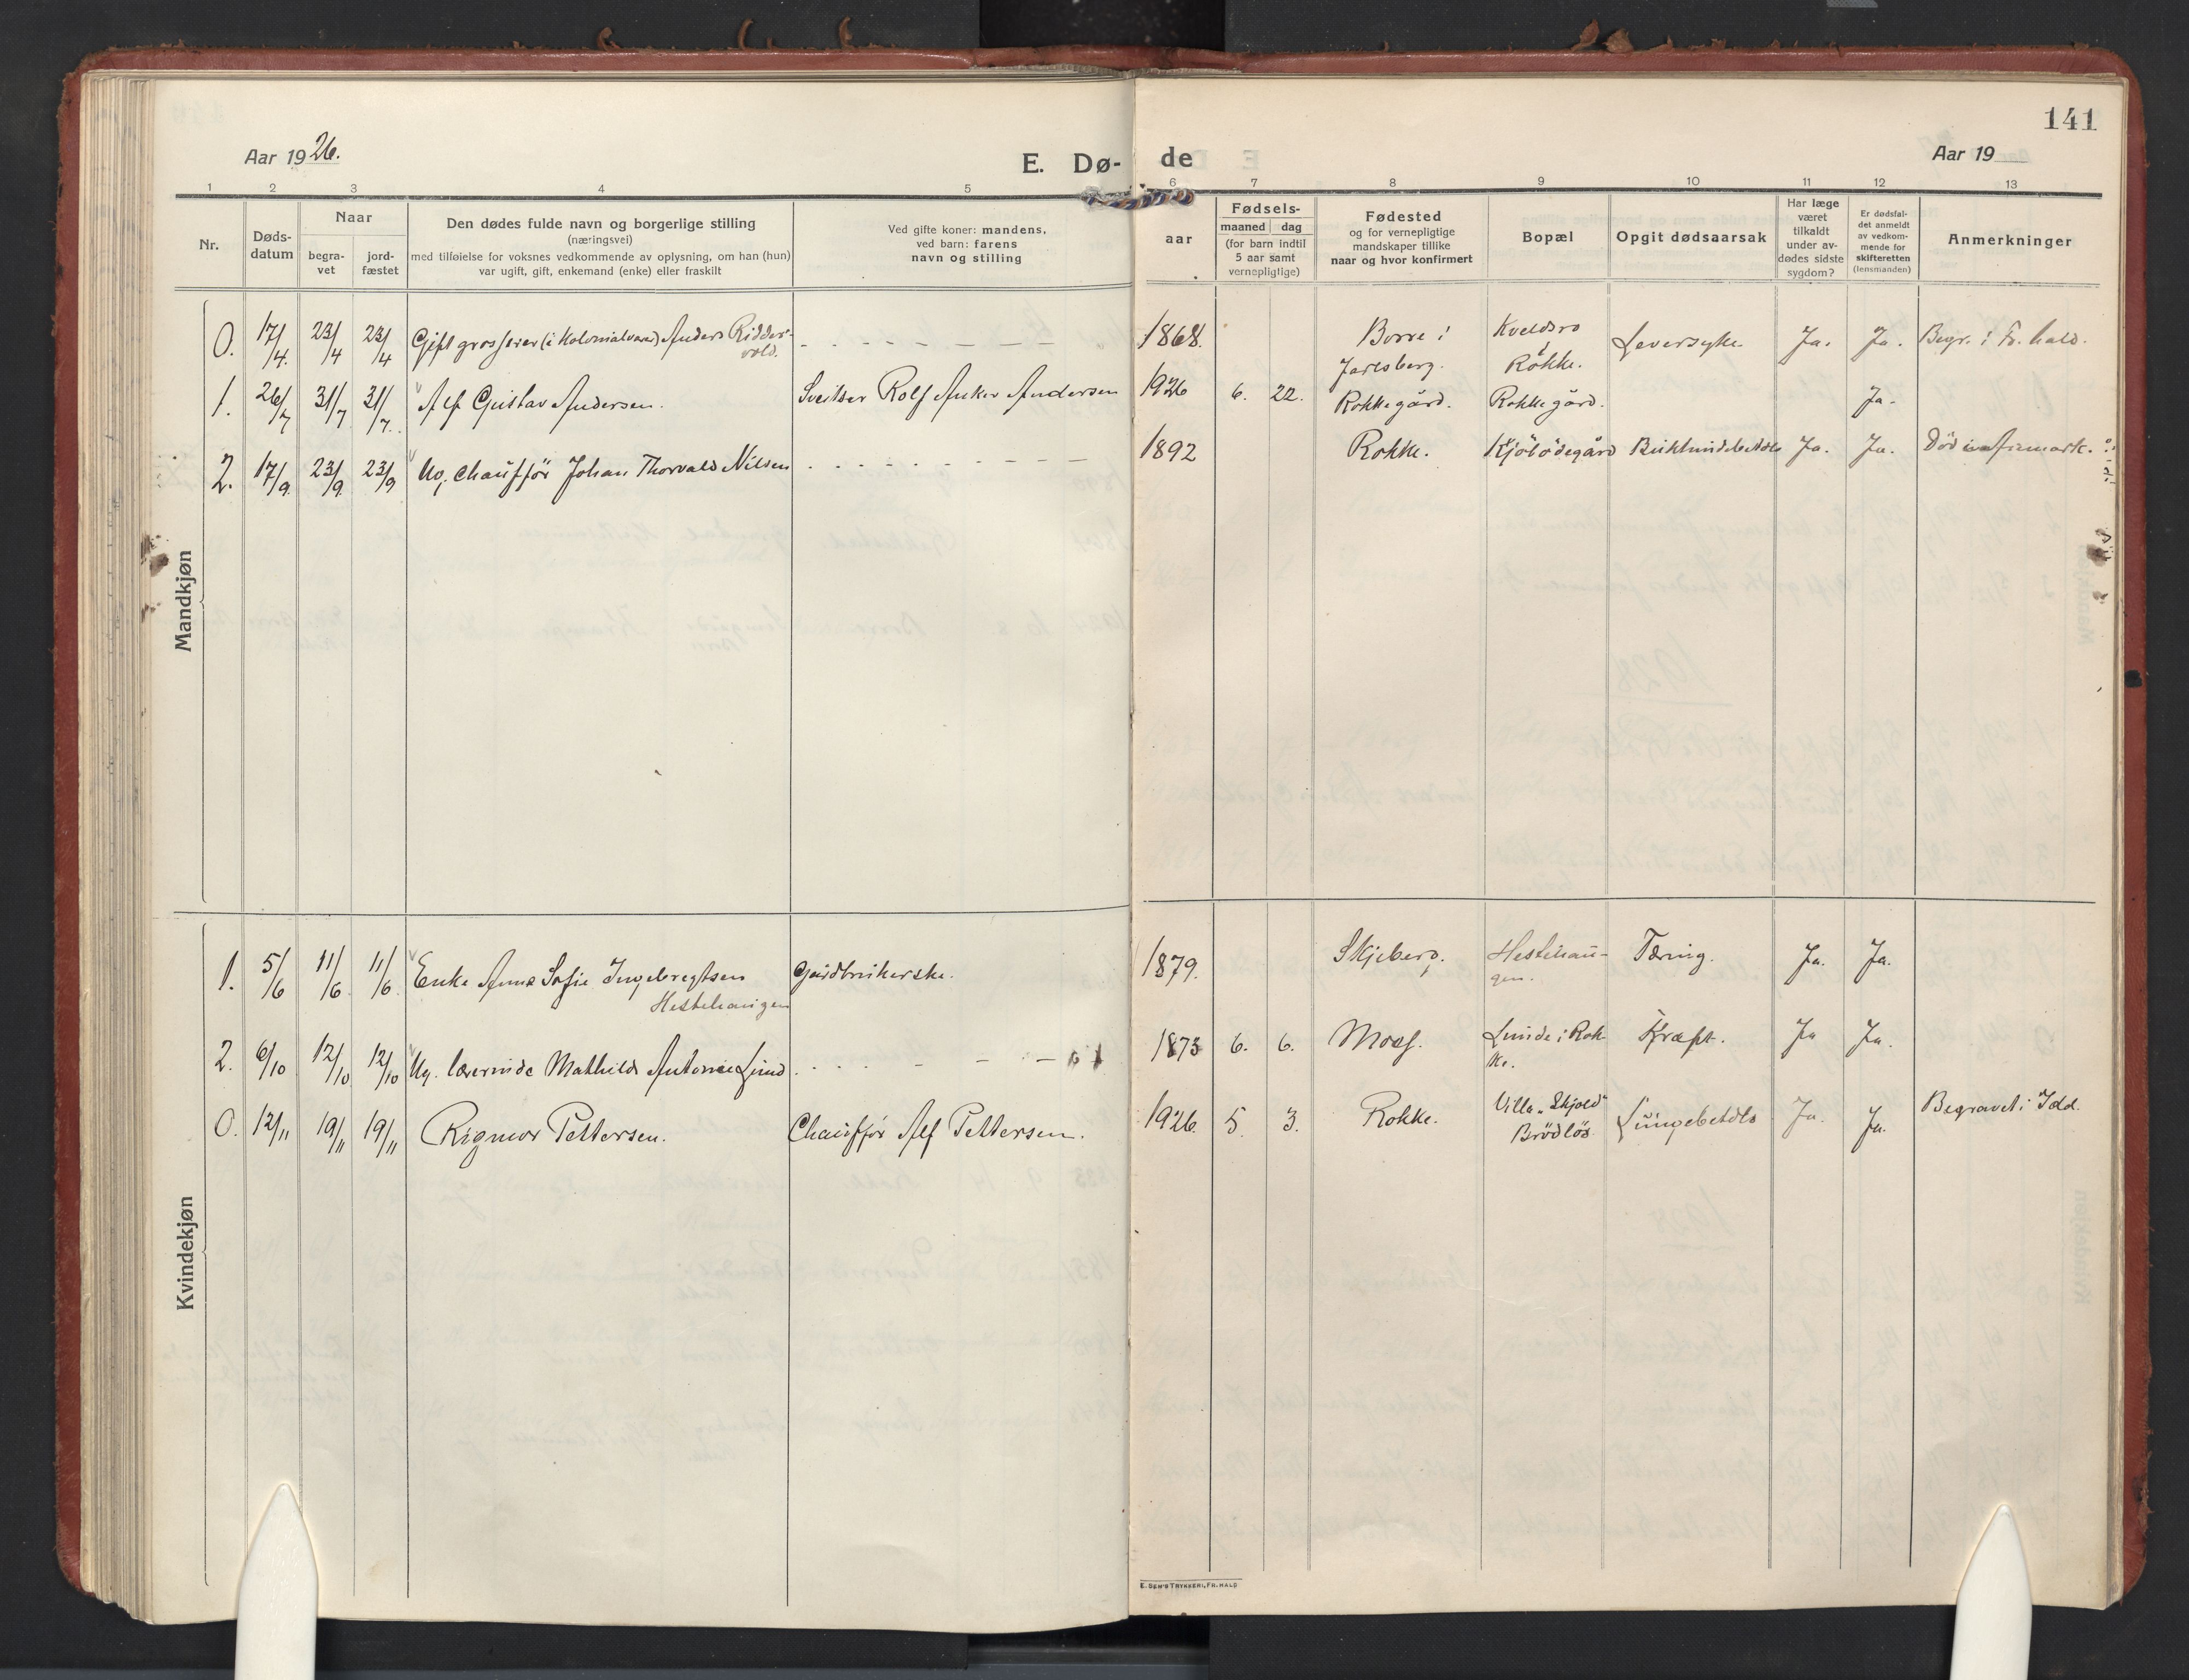 141
Aar 1926.
E. Dø-
de
Aar 19
1 2 3 4 5 6 7 8 9 10 11 12 13
Nr.
Døds-
datum
Naar
begra-
vet
jord-
fæstet
Den dødes fulde navn og borgerlige stilling
(næringsvei)
med tilføielse for voksnes vedkommende av oplysning, om han (hun)
var ugift, gift, enkemand (enke) eller fraskilt
Ved gifte koner: mandens,
ved barn: farens
navn og stilling
aar
Fødsels-
maaned dag
(for barn indtil
5 aar samt
vernepligtige)
Fødested
og for vernepligtige
mandskaper tillike
naar og hvor konfirmert
Bopæl
Opgit dødsaarsak
Har læge
været
tilkaldt
under av-
dødes sidste
sygdom?
Er dødsfal-
det anmeldt
av vedkom-
mende for
skifteretten
(lensmanden)
Anmerkninger
Mandkjøn
0. 17/4. 23/4 23/4 Gift grosserer (i Kolonialvarer) Anders Ridder-
vold. 1868. Borre i
Jarlsberg. Kveldsro
i
Rokke. Leversyke Ja. Ja. Begr. i Fr. hald.
1. 26/7 31/7 31/7. Alf Gustav Andersen. Sveitser Rolf Anker Andersen 1926 6. 22. Rokkegård. Rokkegård. Ja.
2. 17/9. 23/9. 23/9 Ug. chauffør Johan Thorvald Nilsen 1892 Rokke. Kjölödegård Ja. Ja. Død
Kvindekjøn
1. 5/6 11/6. 11/6. Enke Anna Sofie Ingebregtsen
Hestehaugen Gårdbrukerske. 1879. Skjeberg. Hestehau-
gen. Tæring. Ja. Ja.
2. 6/10 12/10 12/10 Ug. lærerinde Mathilde Antonie Lund 1873 6. 6. Moss. Lunde i Rok-
ke. Kræft. Ja Ja.
0. 12/11 19/11 19/11 Rigmor Pettersen. Chauffør Alf Pettersen. 1926. 5. 3. Rokke. Villa „Skjold"
Brödlös Lungebetdls Ja. Ja. Begravet i Idd.
E. SEM'S TRYKKERI, FR.HALD